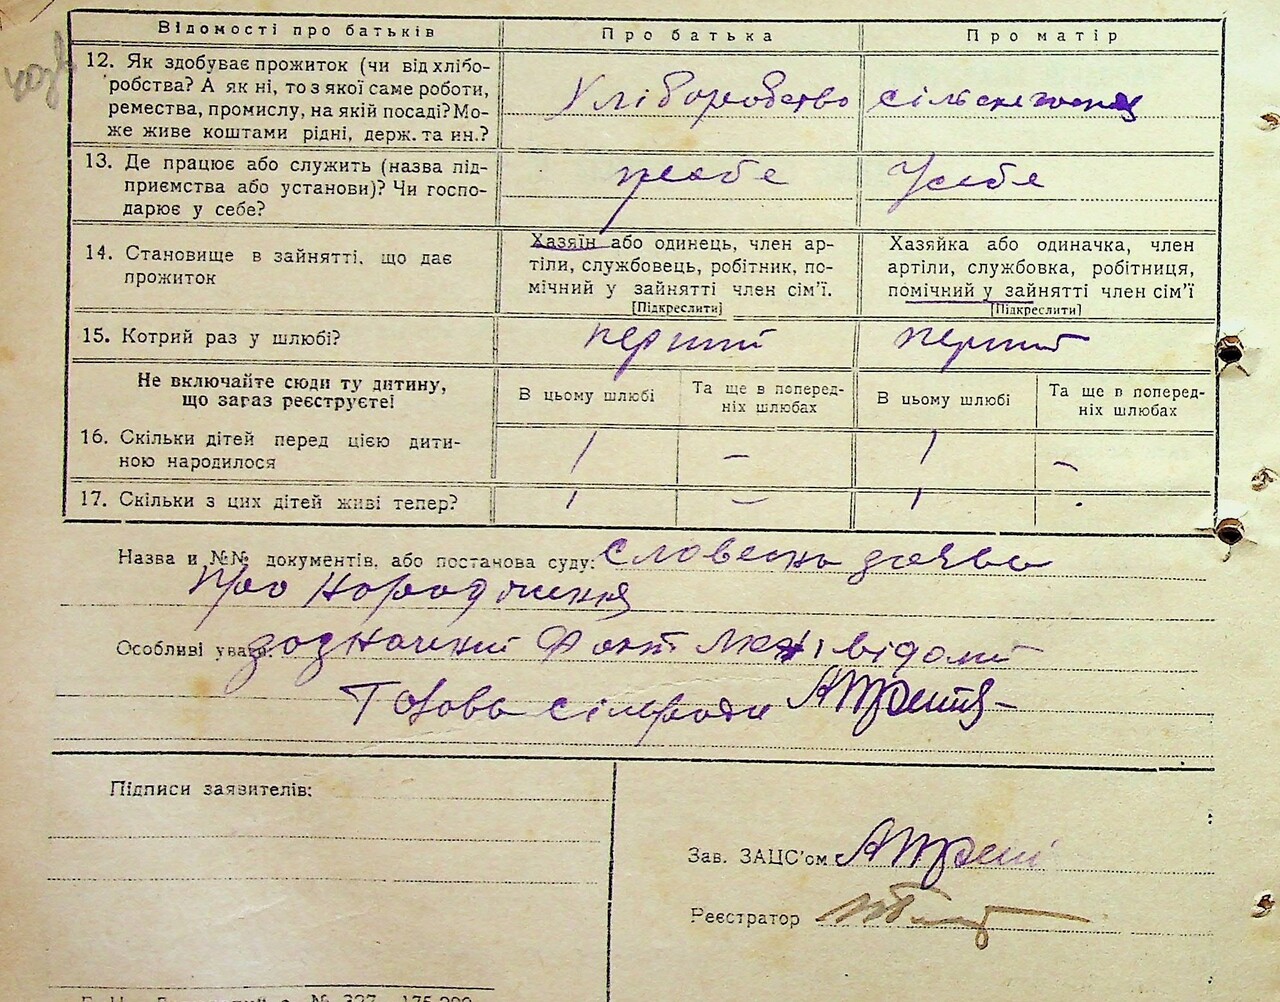 Відомості про батьків
Про батька
Про матір
12. Як здобуває прожиток (чи від хлібо-
робства? А як ні, то з якої саме роботи,
ремества, промислу, на якій посаді? Мо-
же живе коштами рідні, держ. та ин.?
хліборобство
13. Де працює або служить (назва під-
приємства або установи)? Чи госпо-
дарює у себе?
у себе
14. Становище в зайнятті, що дає
прожиток
Хазяїн або одинець, член ар-
тіли, службовець, робітник, по-
мічний у зайнятті член сім'ї.
[Підкреслити]
Хазяйка або одиначка, член
артіли, службовка, робітниця,
помічний у зайнятті член сім'ї
[Підкреслити]
15. Котрий раз у шлюбі?
перший
перший
Не включайте сюди ту дитину,
що зараз реєструєте!
В цьому шлюбі
Та ще в поперед-
ніх шлюбах
В цьому шлюбі
Та ще в поперед-
ніх шлюбах
16. Скільки дітей перед цією дити-
ною народилося
1
–
1
–
17. Скільки з цих дітей живі тепер?
1
–
1
Назва и №№ документів, або постанова суду: Словесна заява
про народження
Особливі уваги: зазначений факт мені відомий
Голова сільради
Підписи заявителів:
Зав. ЗАЦС'ом
Реєстратор
№ 327